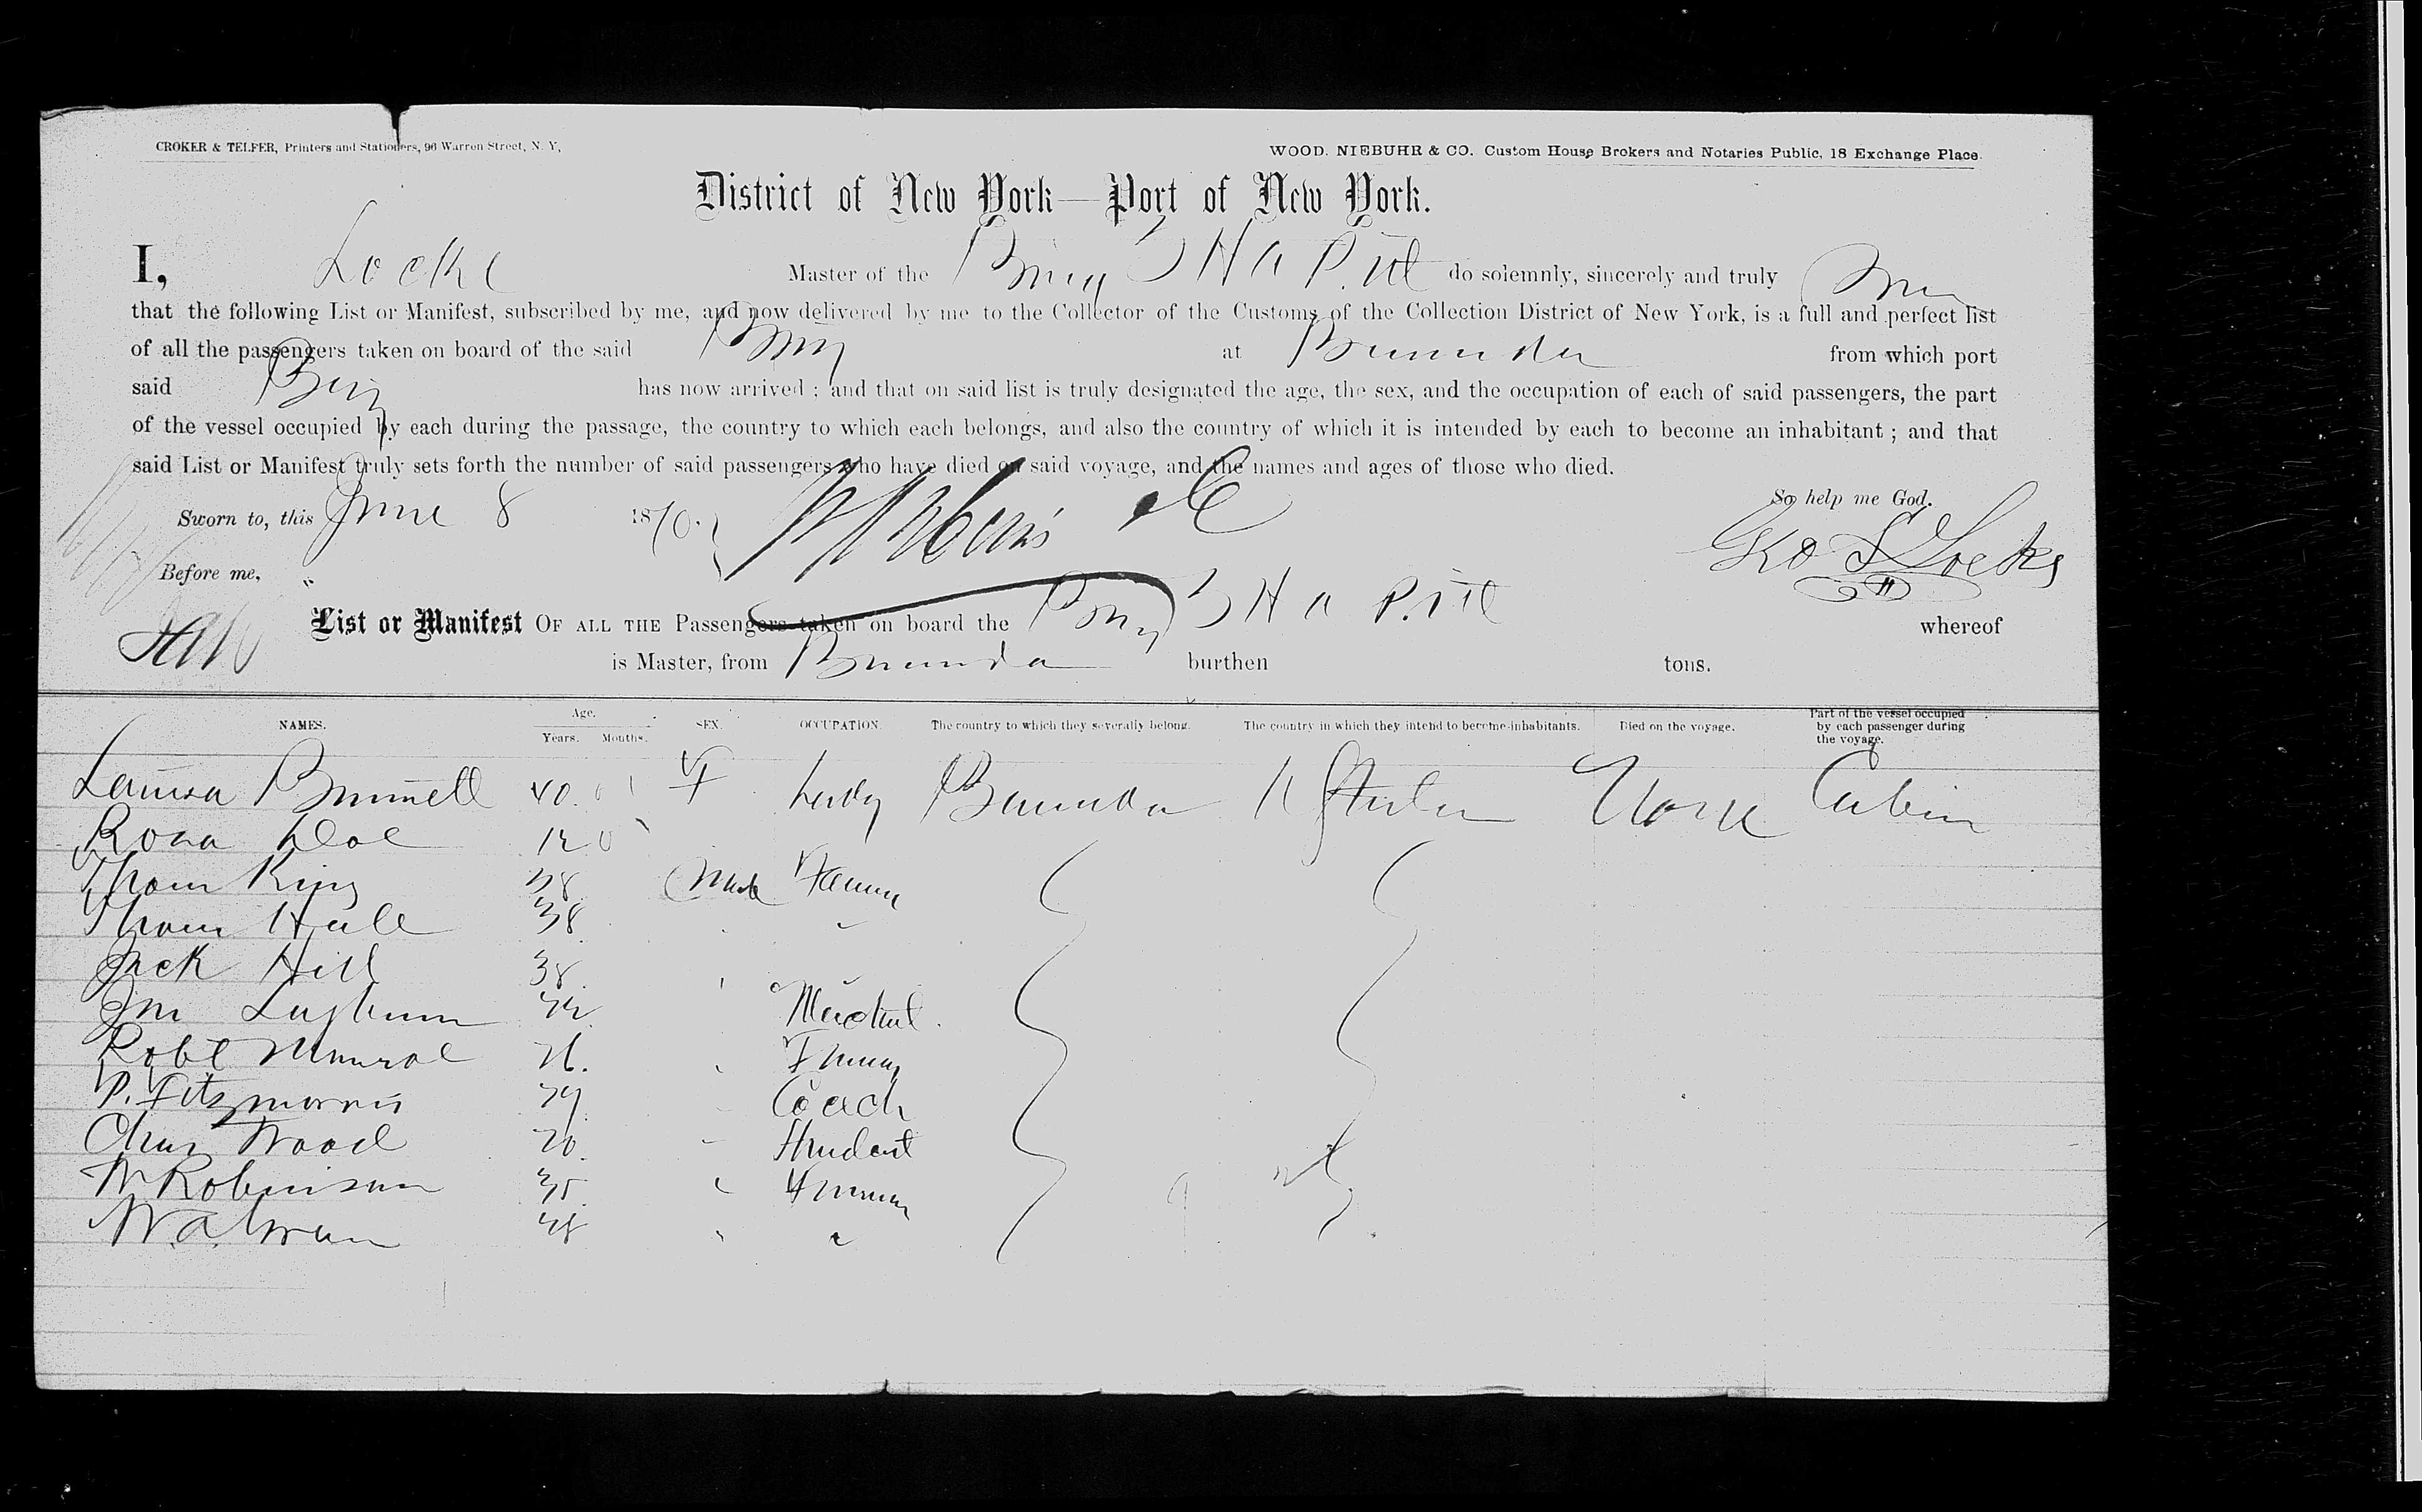 CROKER & TELFER, Printers and Stationers, 96 Warren Street, N. Y,
WOOD. NIEBUHR & CO. Custom House Brokers and Notaries Public, 18 Exchange Place.
District of New York—Port of New York.
I, Locke Master of the Brig T H A Pitt do solemnly, sincerely and truly
that the following List or Manifest, subscribed by me, and now delivered by me to the Collector of the Customs of the Collection District of New York, is a full and perfect list
of all the passengers taken on board of the said Brig at Bermuda from which port
said Brig has now arrived ; and that on said list is truly designated the age, the sex, and the occupation of each of said passengers, the part
of the vessel occupied by each during the passage, the country to which each belongs, and also the country of which it is intended by each to become an inhabitant ; and that
said List or Manifest truly sets forth the number of said passengers who have died on said voyage, and the names and ages of those who died.
So help me God.
Sworn to, this June 8 1870.
Geo S Locke
Before me,
List or Manifest OF ALL THE Passengers taken on board the Brig T H A Pitt whereof
is Master, from Bermuda burthen tons.
NAMES. Age. Years. Months. SEX. OCCUPATION. The country to which they severally belong. The country in which they intend to become inhabitants. Died on the voyage. Part of the vessel occupied by each passenger during the voyage.
Louisa 40 F Lady Bermuda U States None Cabin
Rosa 12
Thom King 38 Male Farmer
Thom Hall 38
Jack Hill 38
Jno
Robt Munroe 26. Farmer
P. Fitzmorris 29 Coach
Chas Wood 20. Student
W Robinson 35 Farmer
W. A.